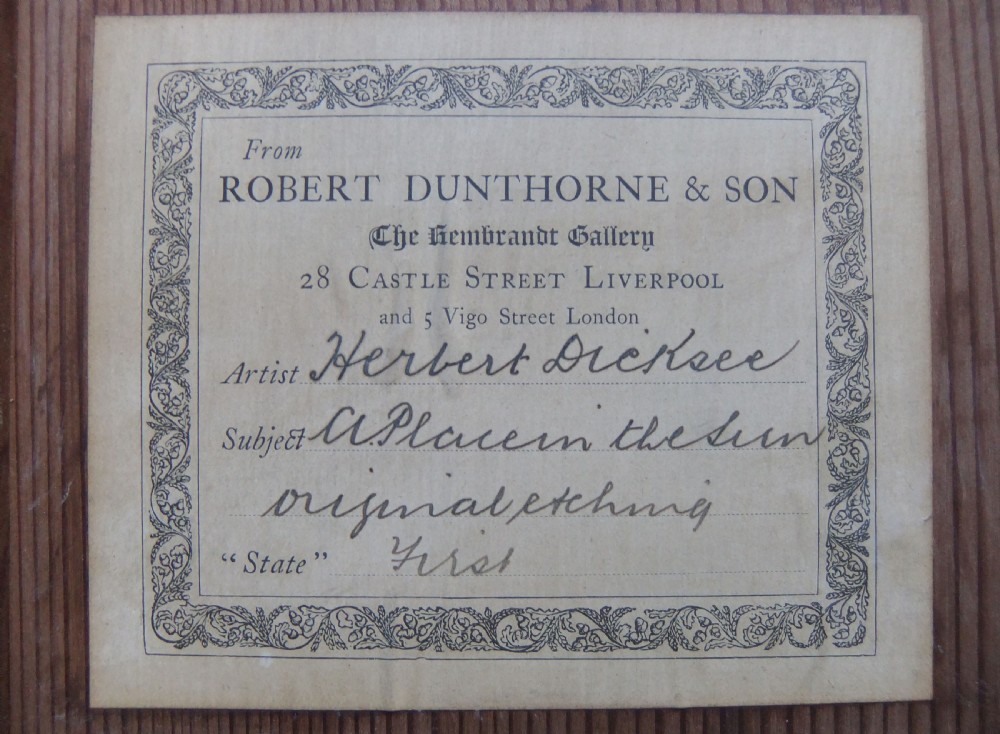 From
ROBERT DUNTHORNE & SON
The Rembrandt Gallery
28 CASTLE STREET LIVERPOOL
and 5 Vigo Street London
Artist Herbert Dicksee
Subject A Place in the Sun
original etching
"State" First